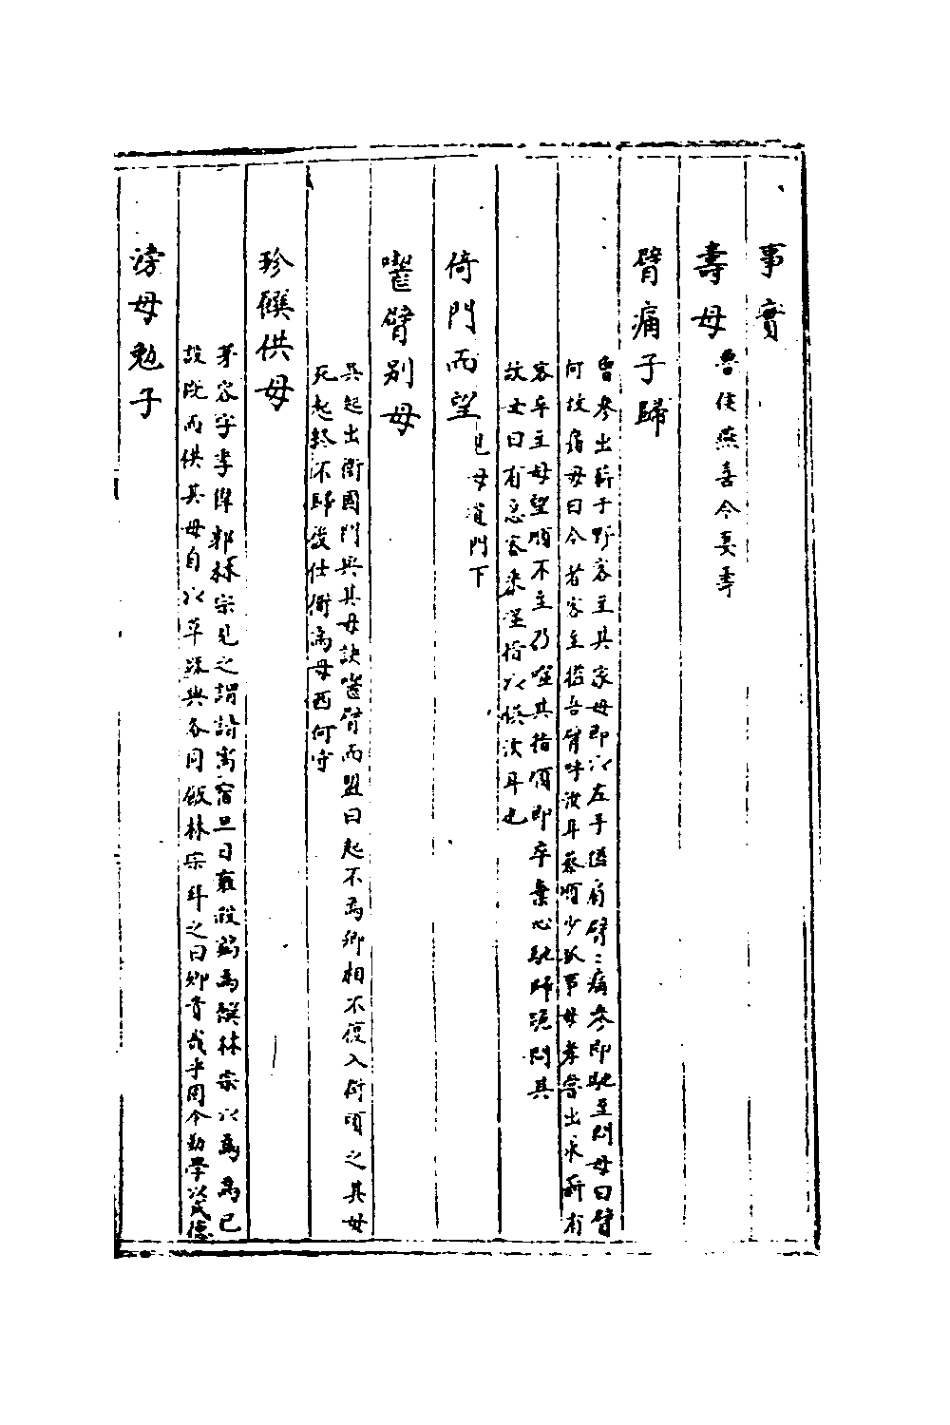 事實
壽母
魯侯燕喜令妻壽
臂痛子歸
曾參出薪于野客至其家母即以左手搤右臂臂痛參即馳至問母曰臂
何故痛母曰今者客至搤吾臂呼汝耳蔡順少孤事母孝嘗出求薪有
客卒至母望順不至乃噬其指順即卒棄心馳歸跪問其
故母曰有急客來噬指以悟汝耳也
倚門而望
見母道門下
嚙臂別母
吳起出衛國門與其母訣嚙臂而盟曰起不為卿相不復入衛頃之其母
死起終不歸後仕衛為母西河守
珍饌供母
茅容字季偉郭林宗見之謂語寄宿旦日容殺雞為饌林宗以為為已
設既而供其母自以草蔬與客同飯林宗拜之曰卿賢哉乎因令勸學以成德
滂母勉子